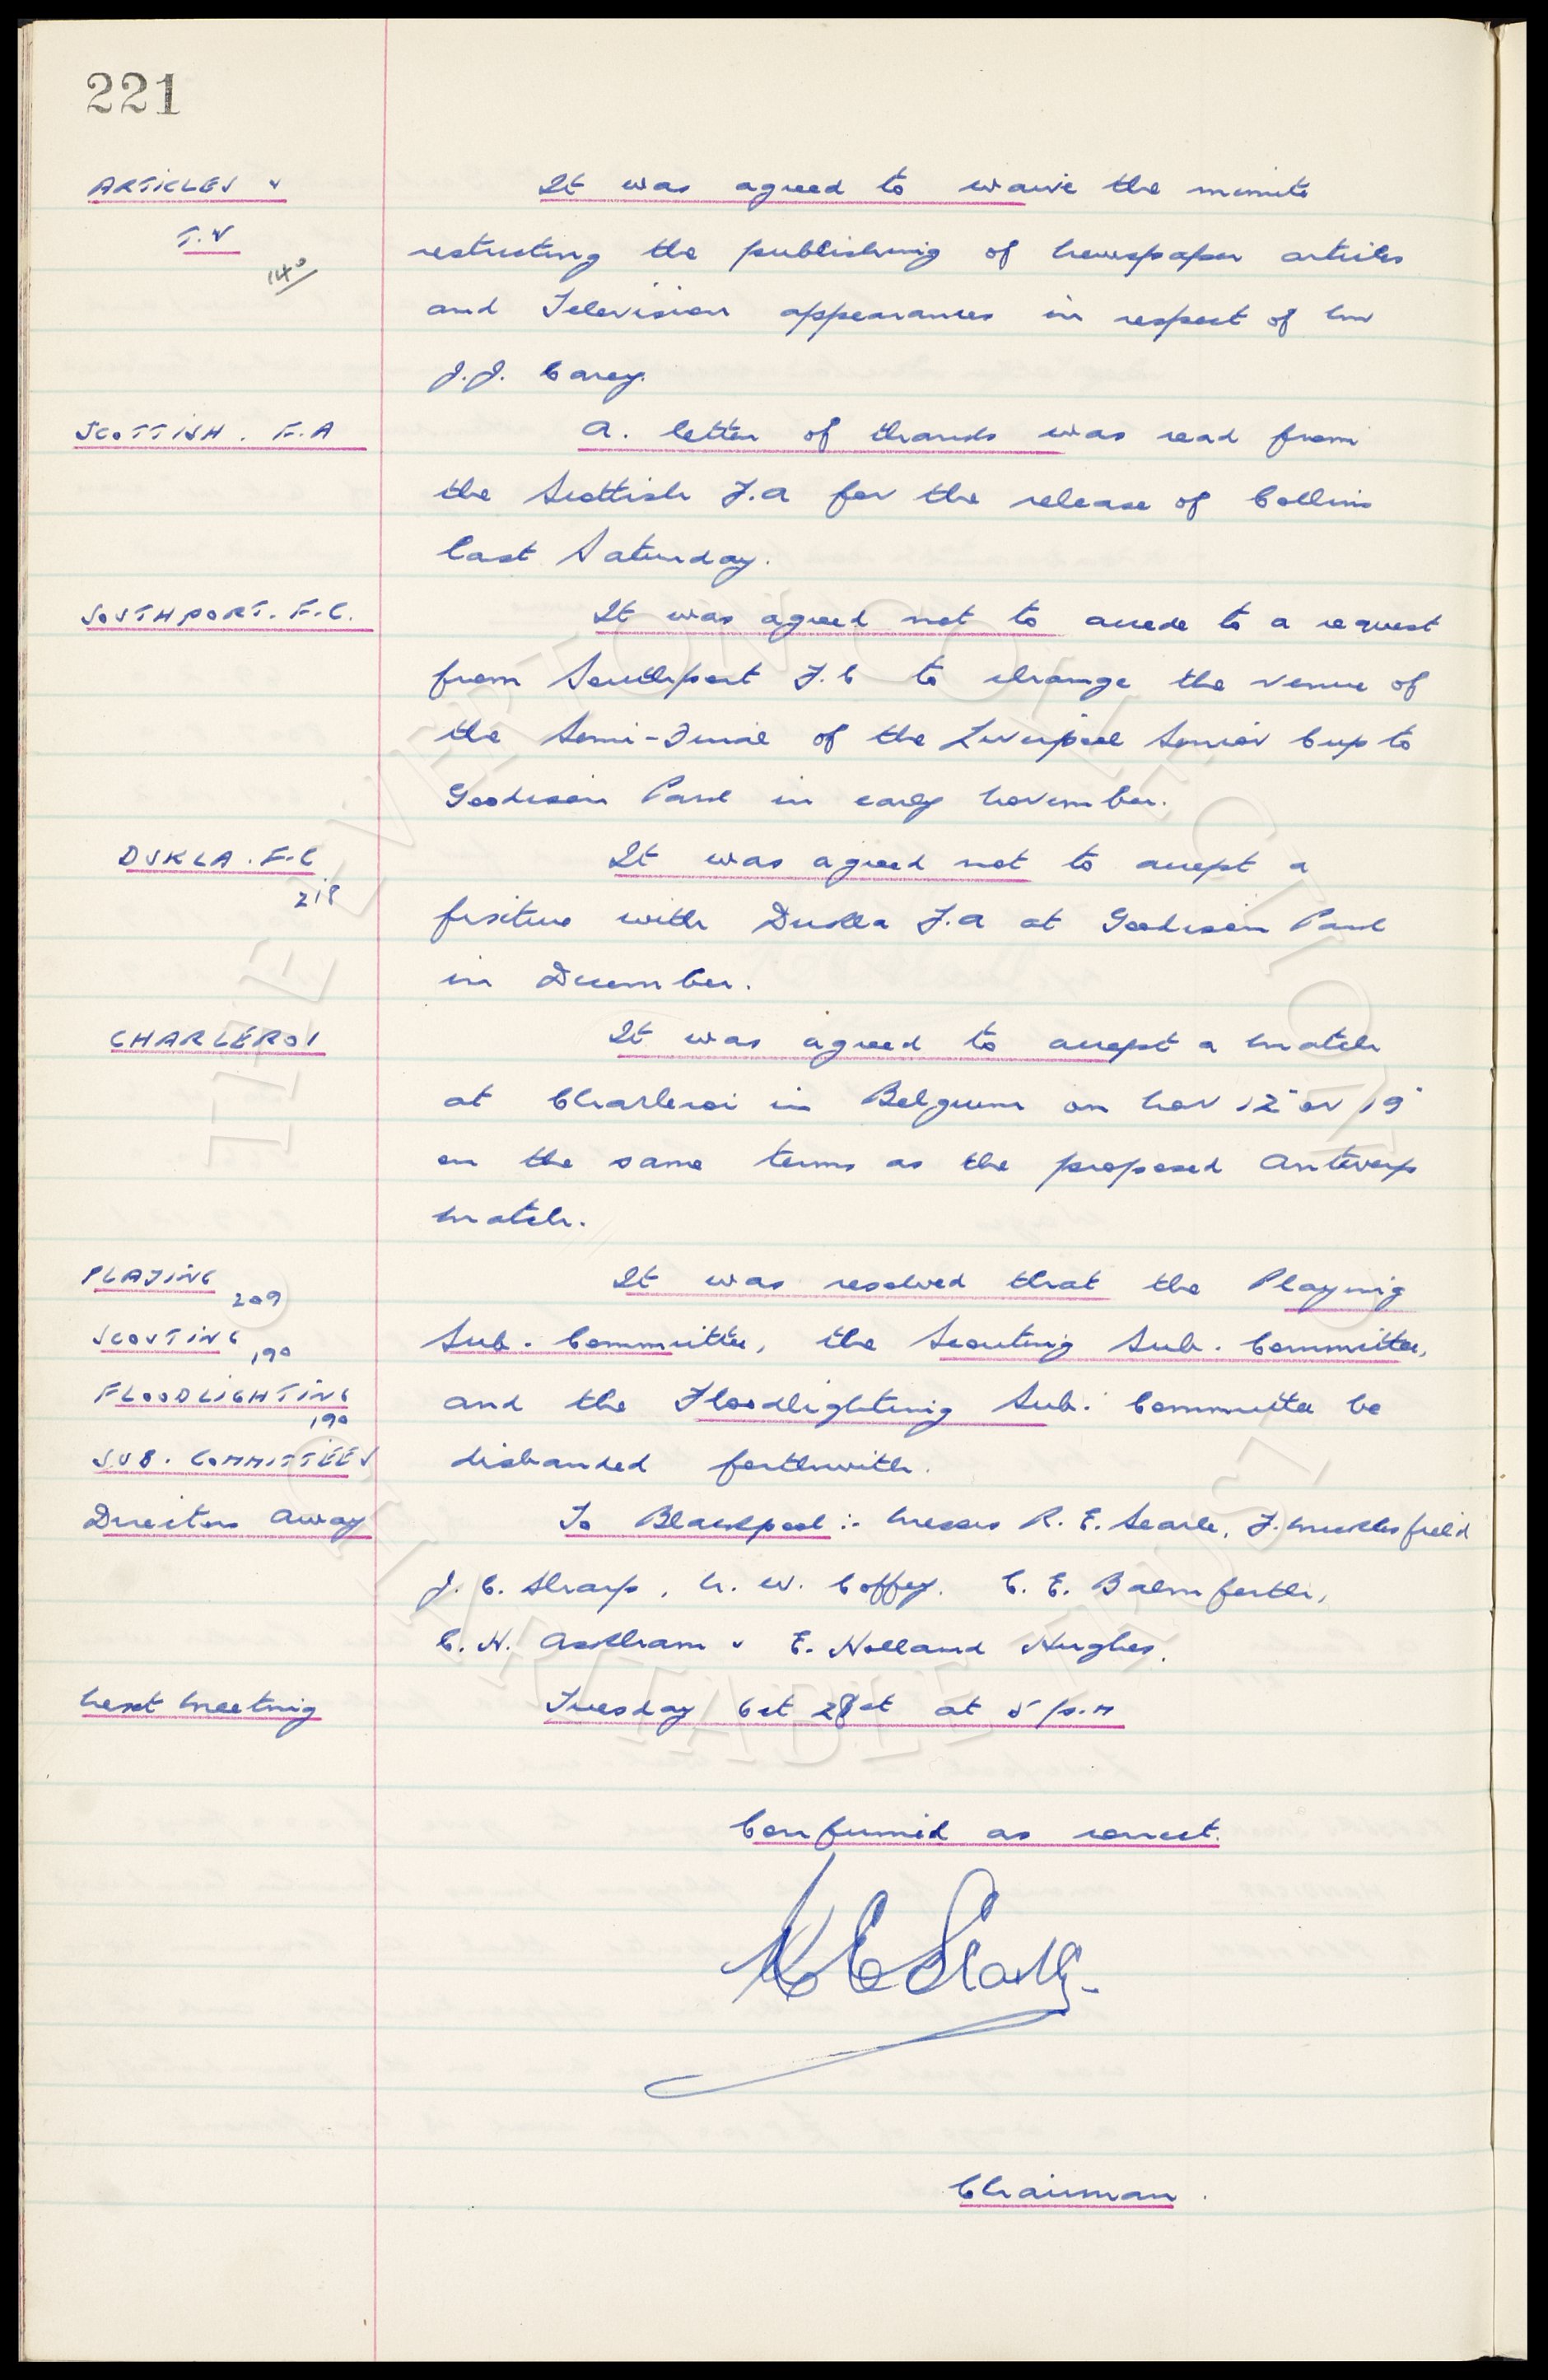 221
ARTICLES & It was agreed to waive the minute
T.V restricting the publishing of newspaper articles
140
and Television appearances in respect of Mr
J.J. Carey.
SCOTTISH. F.A A. letter of thanks was read from
the Scottish F.A for the release of Collins
last Saturday.
SOUTHPORT. F.C. It was agreed not to accede to a request
from Southport F.C to change the venue of
the Semi-Final of the Liverpool Senior Cup to
Goodison Park in early November.
DUKLA. F.C It was agreed not to accept a
218
fixture with Dukla F.A at Goodison Park
in December.
CHARLEROI It was agreed to accept a match
at Charleroi in Belgium on Nov 12" or 19"
on the same terms as the proposed Antwerp
match.
PLAYING 209 It was resolved that the Playing
SCOUTING 190 Sub. Committee, the Scouting Sub. Committee,
FLOODLIGHTING 190 and the Floodlighting Sub. Committee be
SUB. COMMITTEES disbanded forthwith.
Directors Away To Blackpool :- Messrs R. E. Searle, F. Micklesfield
J. C. Sharp, N. W. Coffey. C. E. Balmforth,
C. H. Askham & E. Holland Hughes.
Next Meeting Tuesday Oct 28st at 5 p.m
Confirmed as correct.
Chairman.
THE EVERTON COLLECTION
CHARITABLE TRUST
©